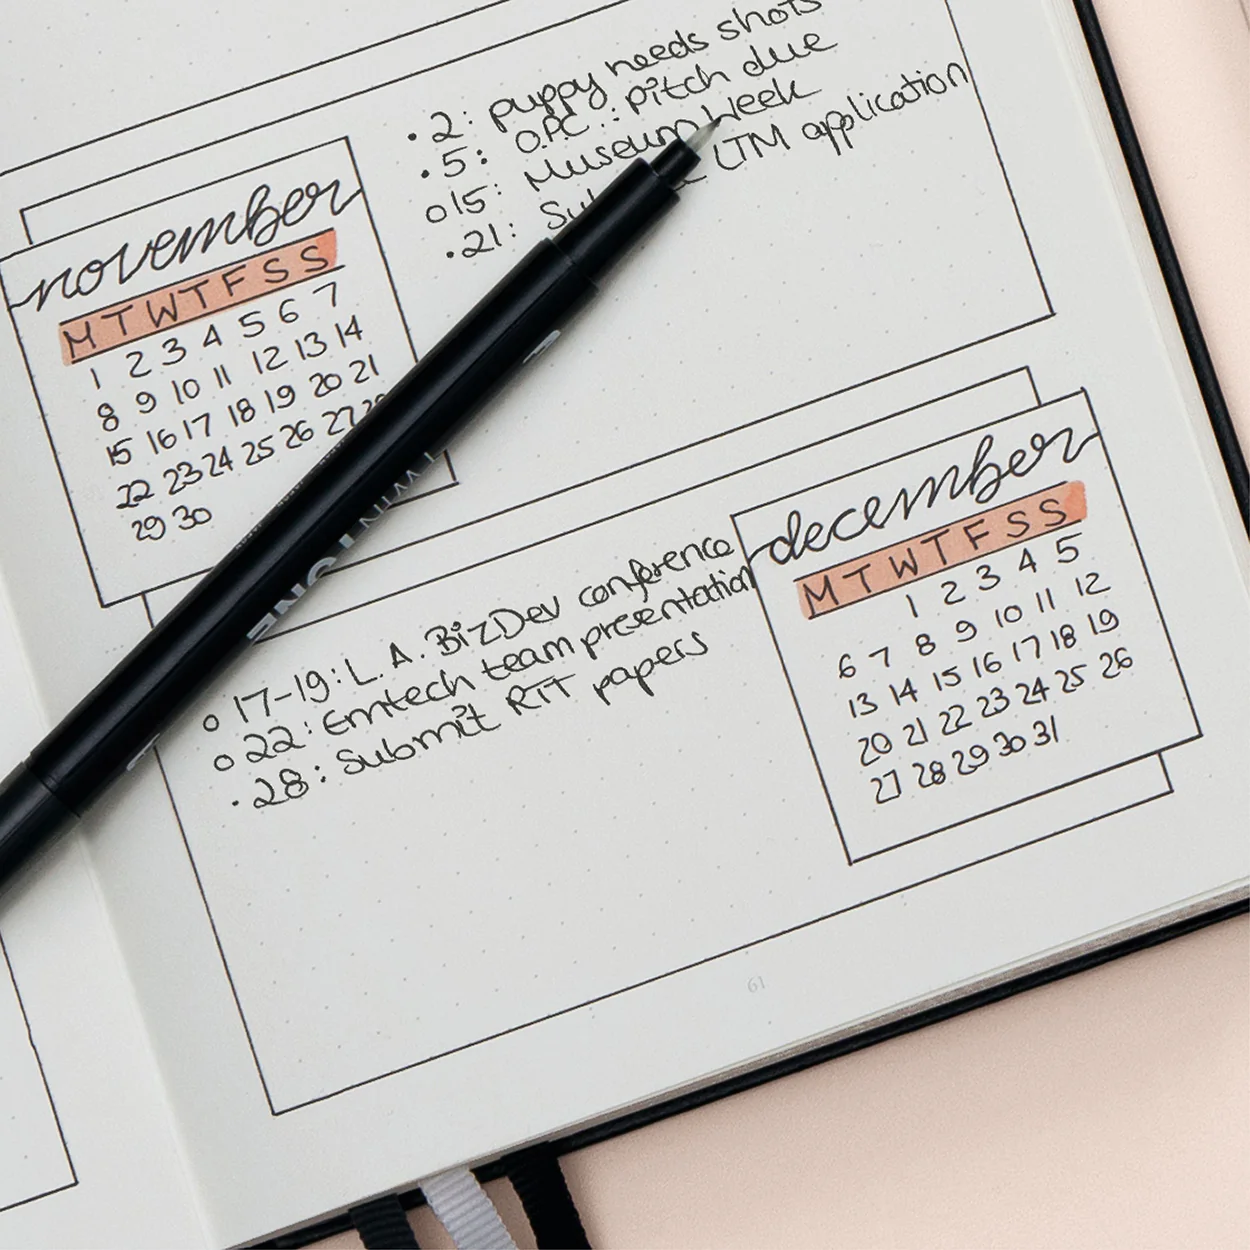 .2: puppy needs shots
.5: O.P.C.: pitch due
o15: Museum Week
.21: LTM application
november
M T W T F S S
1 2 3 4 5 6 7
8 9 10 11 12 13 14
15 16 17 18 19 20 21
22 23 24 25 26 27 28
29 30
december
M T W T F S S
1 2 3 4 5
6 7 8 9 10 11 12
13 14 15 16 17 18 19
20 21 22 23 24 25 26
27 28 29 30 31
o 17-19: L.A. BizDev conference
o 22: Emtech team presentation
.28: Submit RTT papers
61
TWIN TONE